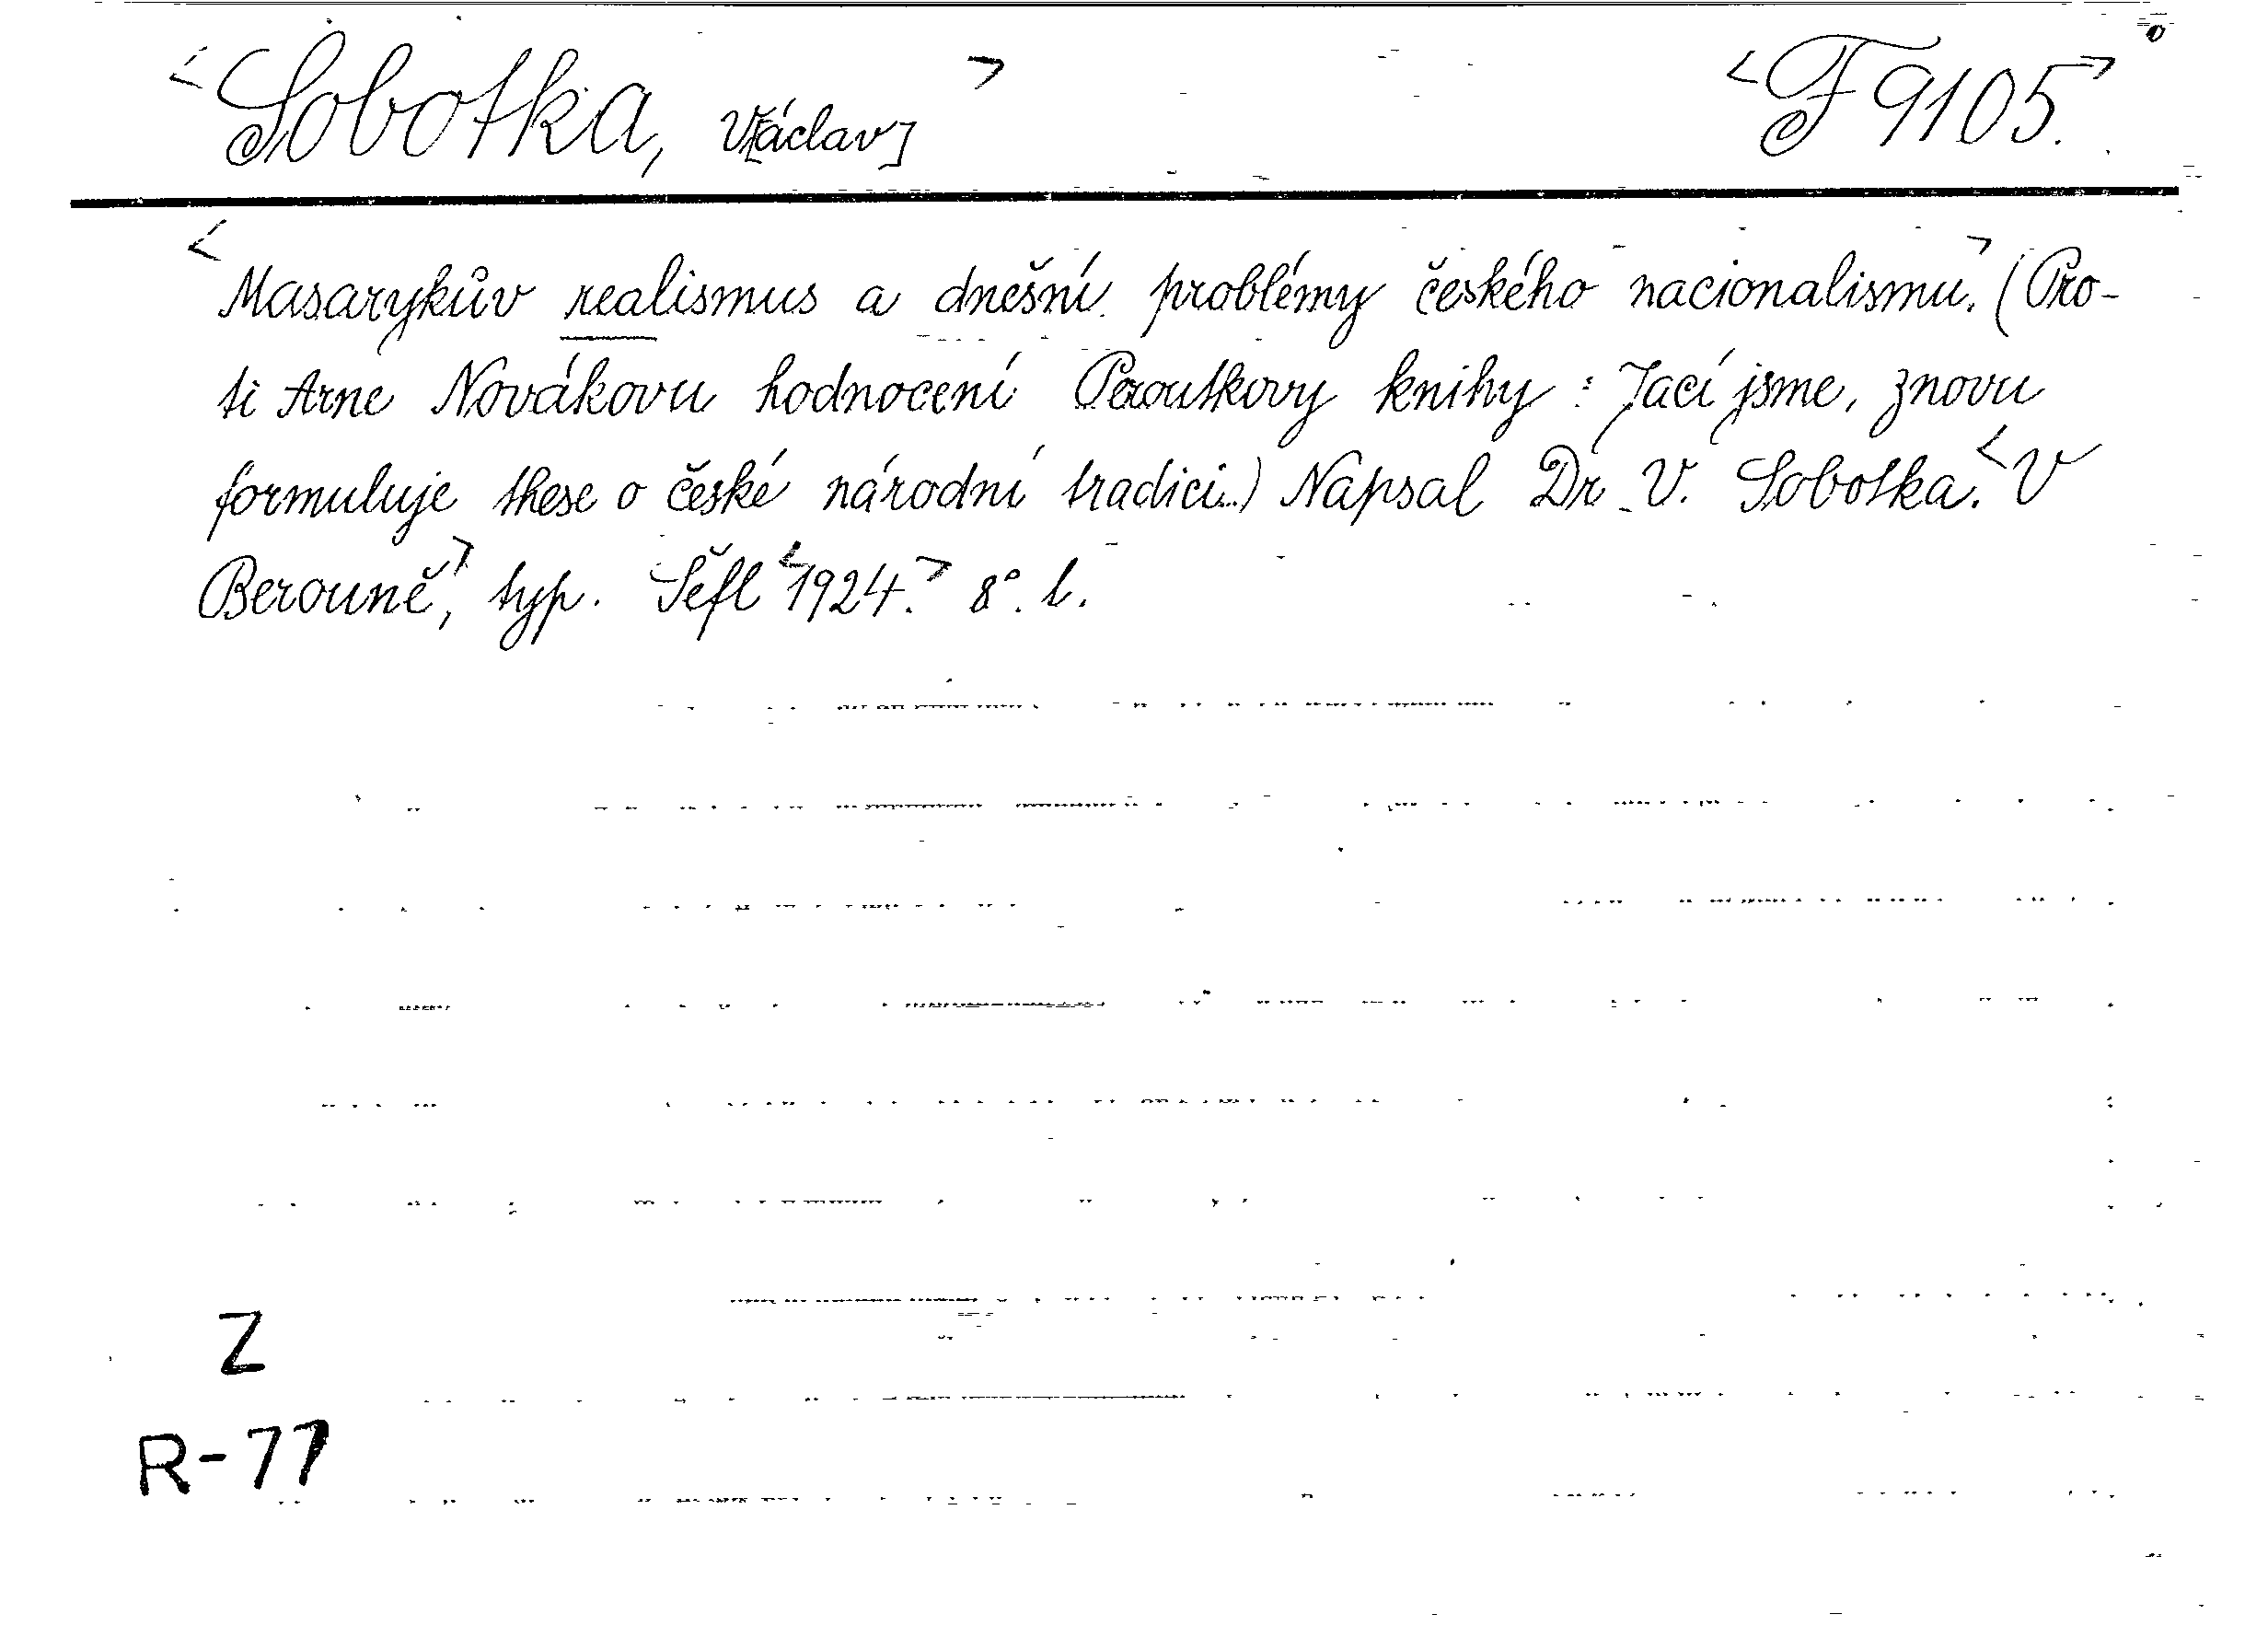 <Sobotka, V[áclav]> <F 9105.>
<Masarykův realismus a dnešní problémy českého nacionalismu.> (Pro-
ti Arne Novákovu hodnocení Peroutkovy knihy: Jací jsme, znovu
formuluje these o české národní tradici...) Napsal Dr. V. Sobotka. <V
Berouně>, typ. Šefl <1924.> 8°. l.
Z
R-77